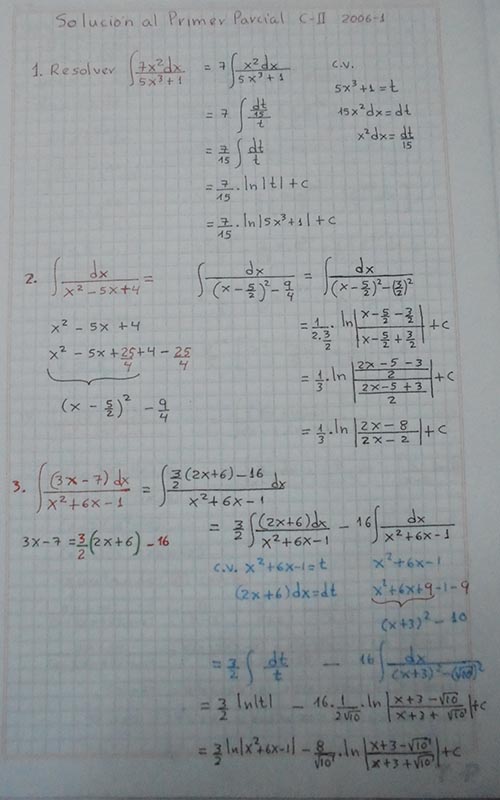 Solución al Primer Parcial C-II 2006-1
1. Resolver ∫ 7x²dx/(5x³+1) = 7∫ x²dx/(5x³+1)
c.v.
5x³+1=t
= 7 ∫ (dt/15)/t
15x²dx=dt
x²dx=dt/15
= 7/15 ∫ dt/t
= 7/15 · ln|t|+c
= 7/15 · ln|5x³+1|+c
2. ∫ dx/(x²-5x+4) = ∫ dx/((x-5/2)²-9/4) = ∫ dx/((x-5/2)²-(3/2)²)
x²-5x+4
x²-5x+25/4+4-25/4
(x-5/2)² -9/4
= 1/(2·3/2) · ln|(x-5/2-3/2)/(x-5/2+3/2)|+c
= 1/3 · ln|((2x-5-3)/2)/((2x-5+3)/2)|+c
= 1/3 · ln|(2x-8)/(2x-2)|+c
3. ∫ (3x-7)dx/(x²+6x-1) = ∫ (3/2(2x+6)-16)/(x²+6x-1) dx
3x-7=3/2(2x+6)-16
= 3/2 ∫ (2x+6)dx/(x²+6x-1) - 16∫ dx/(x²+6x-1)
c.v. x²+6x-1=t
(2x+6)dx=dt
x²+6x-1
x²+6x+9-1-9
(x+3)²-10
= 3/2 ∫ dt/t - 16∫ dx/((x+3)²-(√10)²)
= 3/2 ln|t| - 16·1/(2√10) · ln|(x+3-√10)/(x+3+√10)|+c
= 3/2 ln|x²+6x-1| - 8/√10 · ln|(x+3-√10)/(x+3+√10)|+c